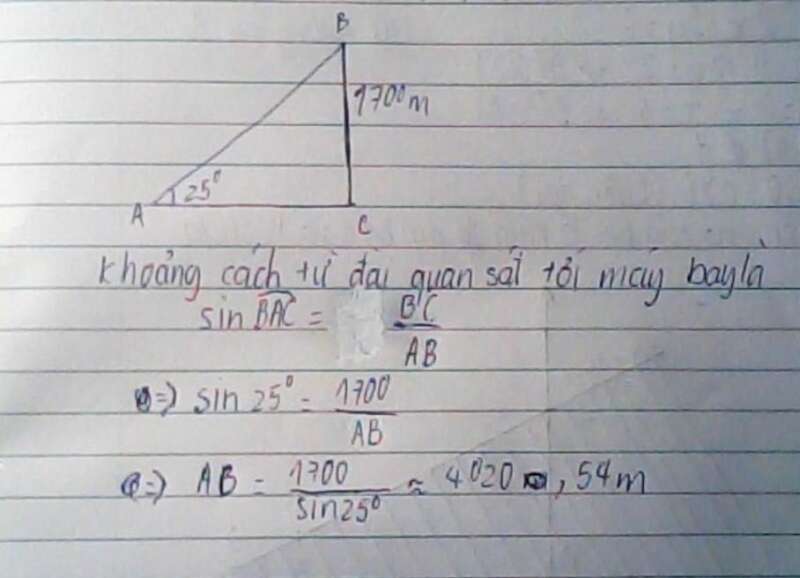 B
1700m
25°
A
C
Khoảng cách từ đài quan sát tới máy bay là
sin BAC = BC/AB
=> sin 25° = 1700/AB
(=> AB = 1700/sin25° ≈ 4020,54m